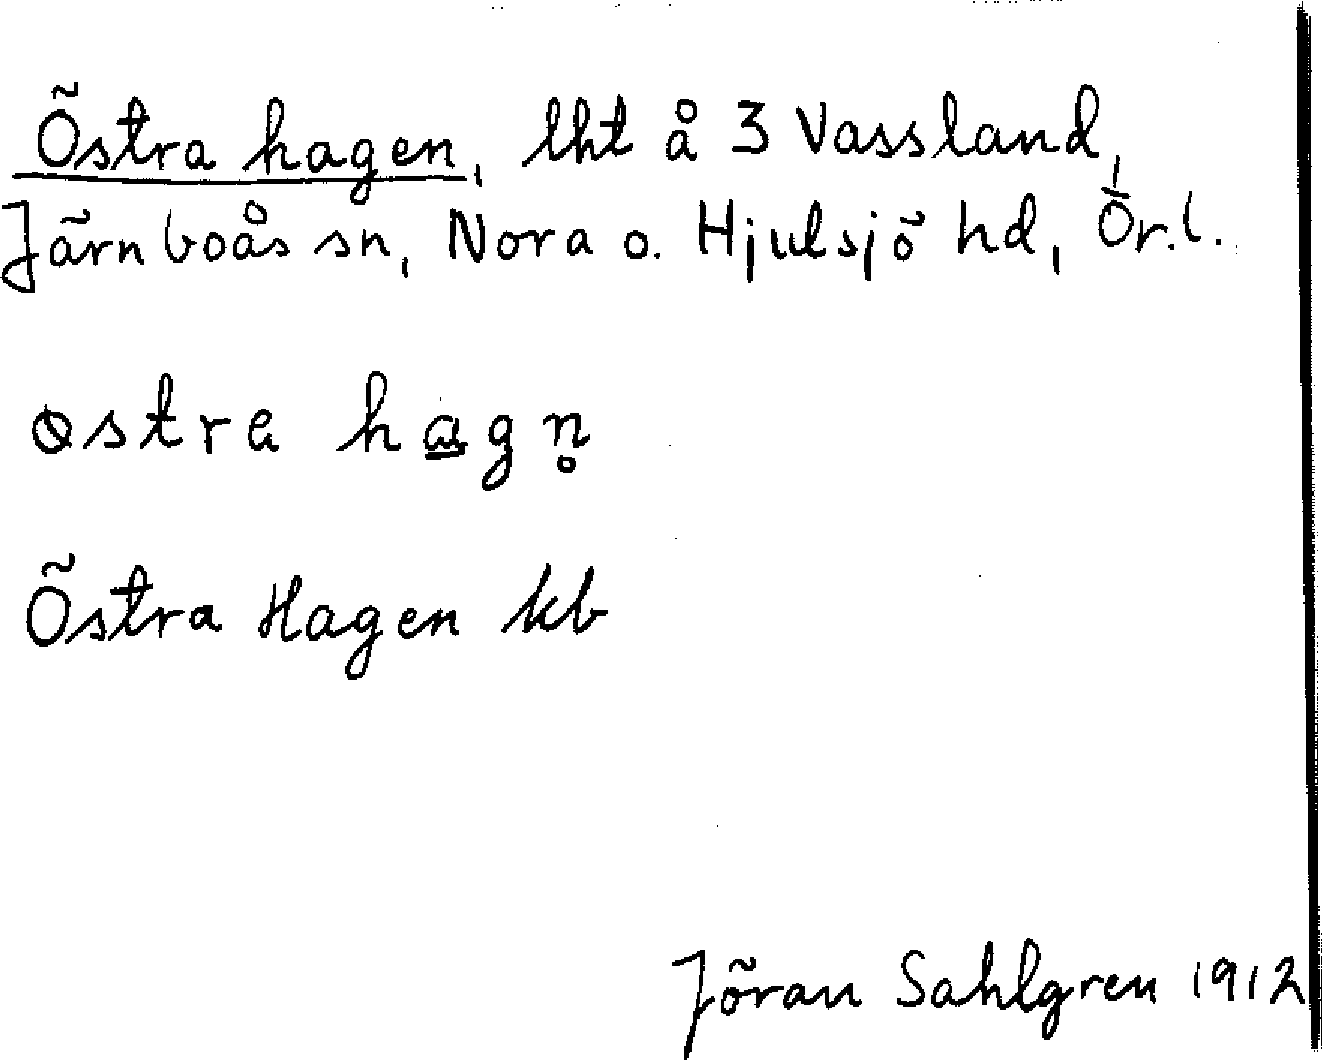 Östra hagen, lht å 3 Vassland,
Järnboås sn, Nora o. Hjulsjö hd, Ör.l.
østra hagn̥
Östra Hagen kb
Jöran Sahlgren 1912